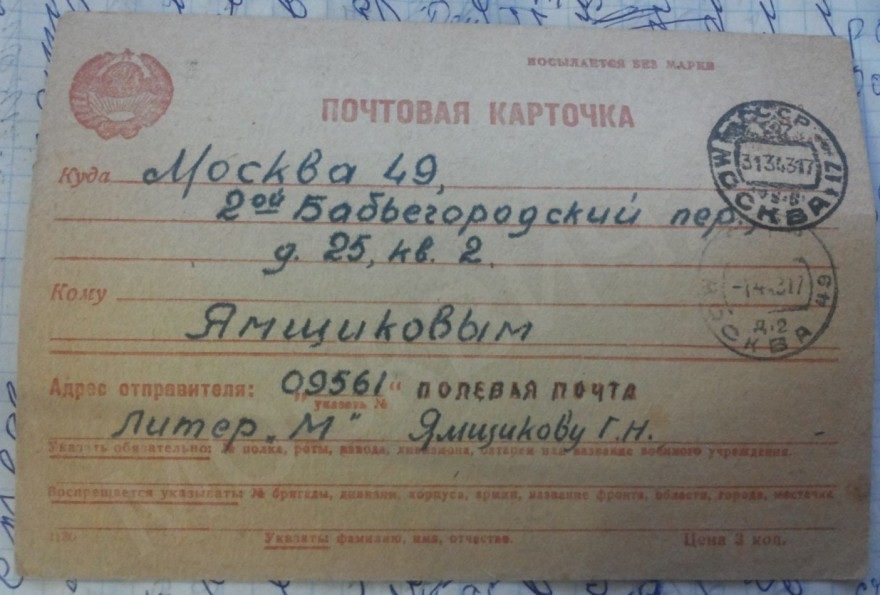 ПОСЫЛАЕТСЯ БЕЗ МАРКИ
ПОЧТОВАЯ КАРТОЧКА
Куда Москва 49,
2ой Бабьегородский пер.,
д. 25, кв. 2.
Кому
Ямщиковым
Адрес отправителя: "09561" ПОЛЕВАЯ ПОЧТА
указать №
Литер „М" Ямщикову Г.Н.
Указать обязательно: № полка, роты, взвода, дивизиона, батареи или название военного учреждения.
Воспрещается указывать: № бригады, дивизии, корпуса, армии, название фронта, области, города, местечка
Указать фамилию, имя, отчество.
Цена 3 коп.
СССР
МОСКВА 17
3134317
МОСКВА 49
-14.4317
Д.2